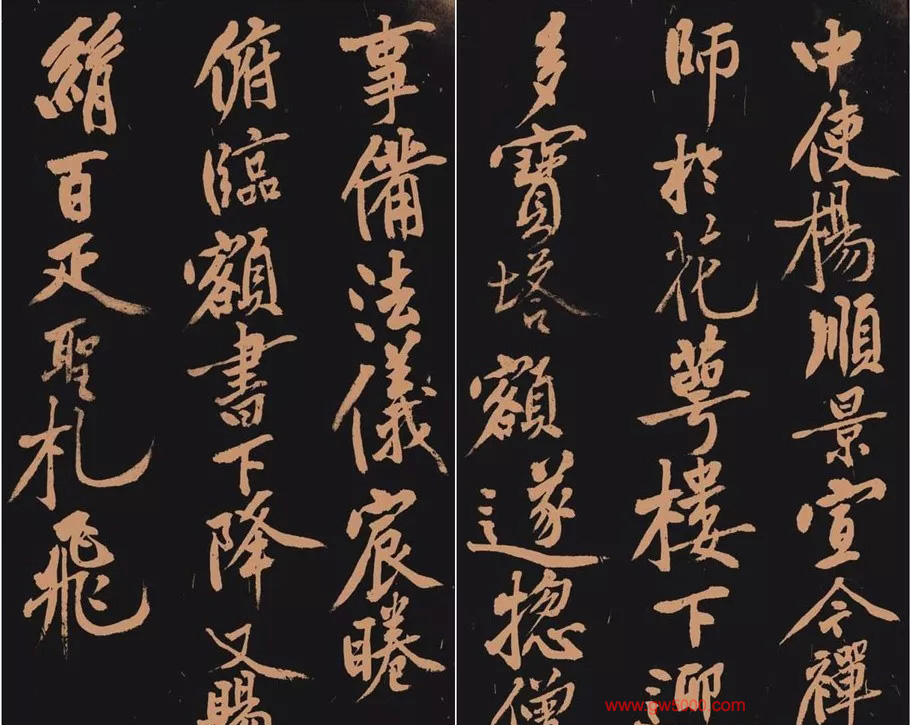 中使楊順景宣令禪
師於花萼樓下迎
多寶塔額遂揔僧
事備法儀宸睠
俯臨額書下降又賜
絹百疋聖札飛
www.gw5000.com